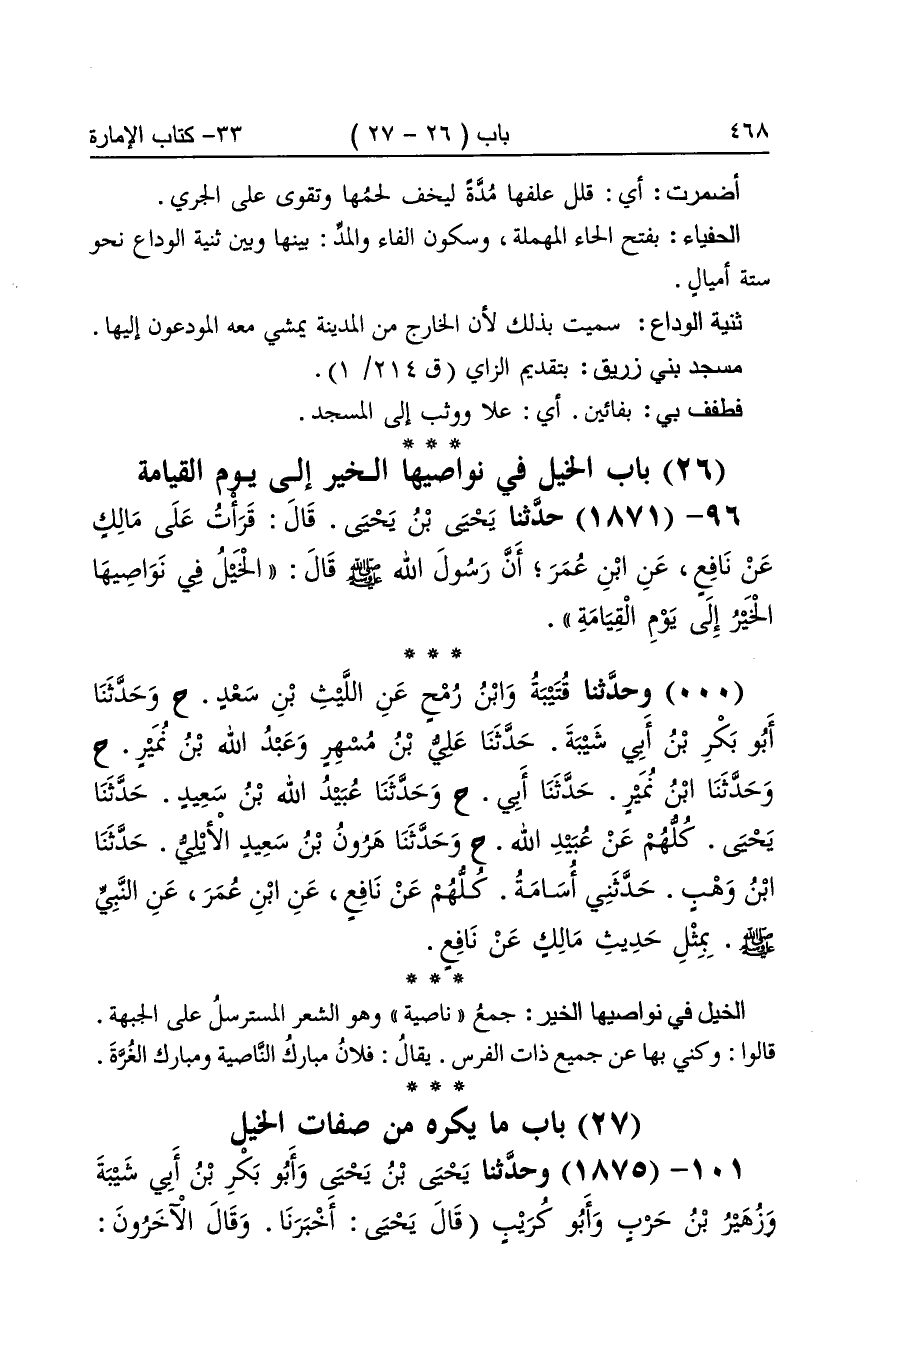 ٤٦٨ باب ( ٢٦ - ٢٧ ) ٣٣- كتاب الإمارة
أضمرت : أي : قلل علفها مُدَّةً ليخف لحمُها وتقوى على الجري .
الحفياء : بفتح الحاء المهملة ، وسكون الفاء والمدِّ : بينها وبين ثنية الوداع نحو
ستة أميالٍ .
ثنية الوداع : سميت بذلك لأن الخارج من المدينة يمشي معه المودعون إليها .
مسجد بني زريق : بتقديم الزاي (ق ٢١٤/ ١) .
فطفف بي : بفائين . أي : علا ووثب إلى المسجد .
* * *
(٢٦) باب الخيل في نواصيها الخير إلى يوم القيامة
٩٦- (١٨٧١) حدَّثنا يَحْيَى بْنُ يَحْيَى . قَالَ : قَرَأْتُ عَلَى مَالِكٍ
عَنْ نَافِعٍ ، عَنِ ابْنِ عُمَرَ ؛ أَنَّ رَسُولَ الله ﷺ قَالَ : « الْخَيْلُ فِي نَوَاصِيهَا
الْخَيْرُ إِلَى يَوْمِ الْقِيَامَةِ » .
* * *
(٠٠٠) وحدَّثنا قُتَيْبَةُ وَابْنُ رُمْحٍ عَنِ اللَّيْثِ بْنِ سَعْدٍ . ح وَحَدَّثَنَا
أَبُو بَكْرِ بْنُ أَبِي شَيْبَةَ . حَدَّثَنَا عَلِيُّ بْنُ مُسْهِرٍ وَعَبْدُ الله بْنُ نُمَيْرٍ . ح
وَحَدَّثَنَا ابْنُ نُمَيْرٍ . حَدَّثَنَا أَبِي . ح وَحَدَّثَنَا عُبَيْدُ الله بْنُ سَعِيدٍ . حَدَّثَنَا
يَحْيَى . كُلُّهُمْ عَنْ عُبَيْدِ الله . ح وَحَدَّثَنَا هَرُونُ بْنُ سَعِيدٍ الْأَيْلِيُّ . حَدَّثَنَا
ابْنُ وَهْبٍ . حَدَّثَنِي أُسَامَةُ . كُلُّهُمْ عَنْ نَافِعٍ ، عَنِ ابْنِ عُمَرَ ، عَنِ النَّبِيِّ
ﷺ . بِمِثْلِ حَدِيثِ مَالِكٍ عَنْ نَافِعٍ .
* * *
الخيل في نواصيها الخير : جمعُ « ناصية » وهو الشعر المسترسلُ على الجبهة .
قالوا : وكني بها عن جميع ذات الفرس . يقالُ : فلانٌ مباركُ النَّاصية ومبارك الغُرَّةَ .
* * *
(٢٧) باب ما يكره من صفات الخيل
١٠١- (١٨٧٥) وحدَّثنا يَحْيَى بْنُ يَحْيَى وَأَبُو بَكْرِ بْنُ أَبِي شَيْبَةَ
وَزُهَيْرُ بْنُ حَرْبٍ وَأَبُو كُرَيْبٍ ( قَالَ يَحْيَى : أَخْبَرَنَا . وَقَالَ الْآخَرُونَ :